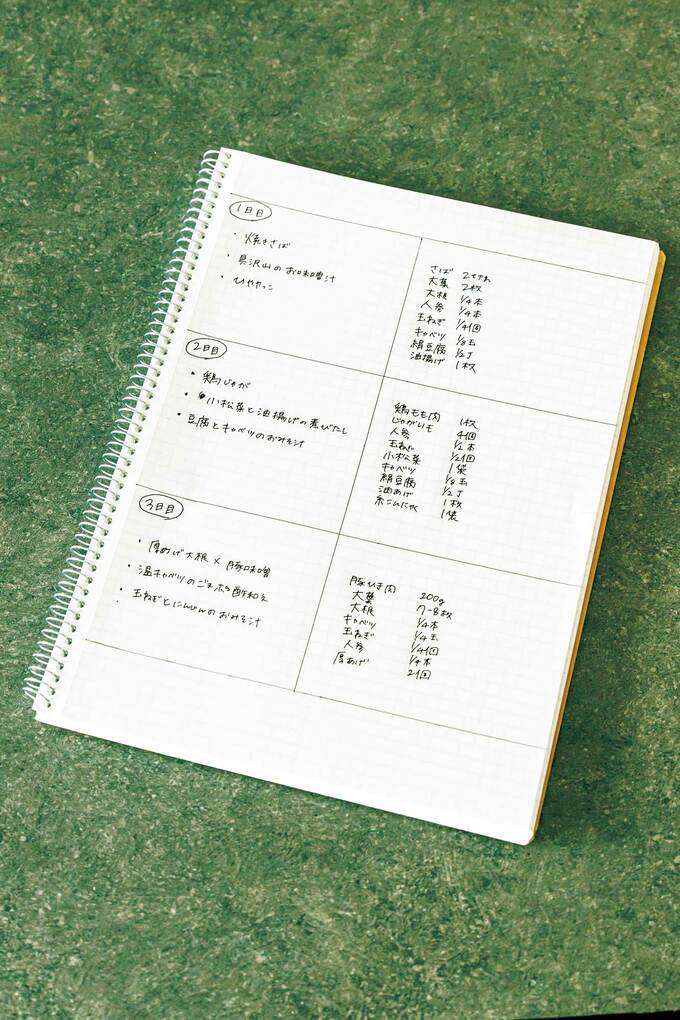 1日目
・焼きさば
・具沢山のお味噌汁
・ひややっこ
さば 2切れ
大葉 2枚
大根 1/4本
人参 1/4本
玉ねぎ 1/4個
キャベツ 1/8玉
絹豆腐 1/2丁
油揚げ 1枚
2日目
・鶏じゃが
・小松菜と油揚げの煮びたし
・豆腐とキャベツのおみそ汁
鶏もも肉 1枚
じゃがいも 4個
人参 1/2本
玉ねぎ 1/2個
小松菜 1袋
キャベツ 1/8玉
絹豆腐 1/2丁
油あげ 1枚
糸こんにゃく 1袋
3日目
・厚あげ大根×豚味噌
・温キャベツのごまポン酢和え
・玉ねぎとにんじんのおみそ汁
豚ひき肉 200g
大葉 7-8枚
大根 1/4本
キャベツ 1/4玉
玉ねぎ 1/4個
人参 1/4本
厚あげ 2個